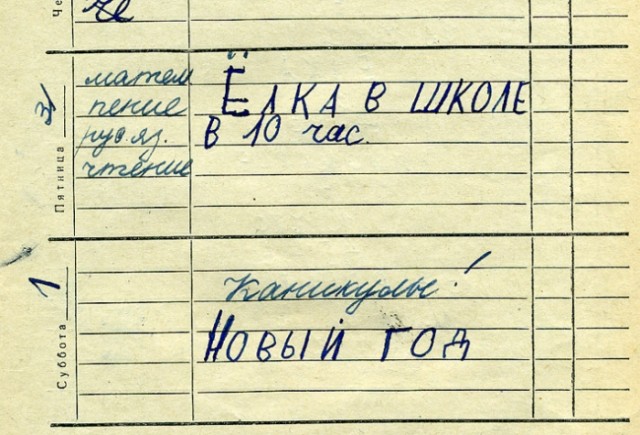 че
Пятница
31
матем
пение
рус.яз.
чтение
Ёлка в школе
в 10 час.
Суббота
1
Каникулы!
Новый год